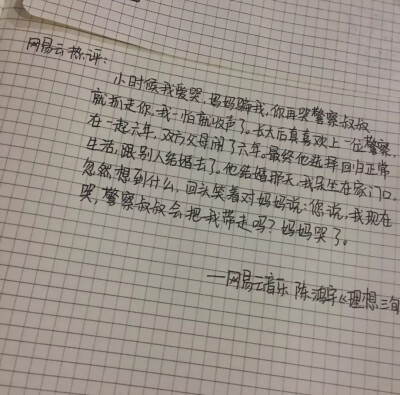 网易云热评：
小时候我爱哭，妈妈骗我，你再哭警察叔叔
就抓走你，我一怕就收声了。长大后真喜欢上一位警察，
在一起六年，双方父母闹了六年。最终他选择回归正常
生活，跟别人结婚去了。他结婚那天，我呆坐在家门口，
忽然想到什么，回头笑着对妈妈说：您说，我现在
哭，警察叔叔会把我带走吗？妈妈哭了。
——网易云音乐 陈鸿宇《理想三旬